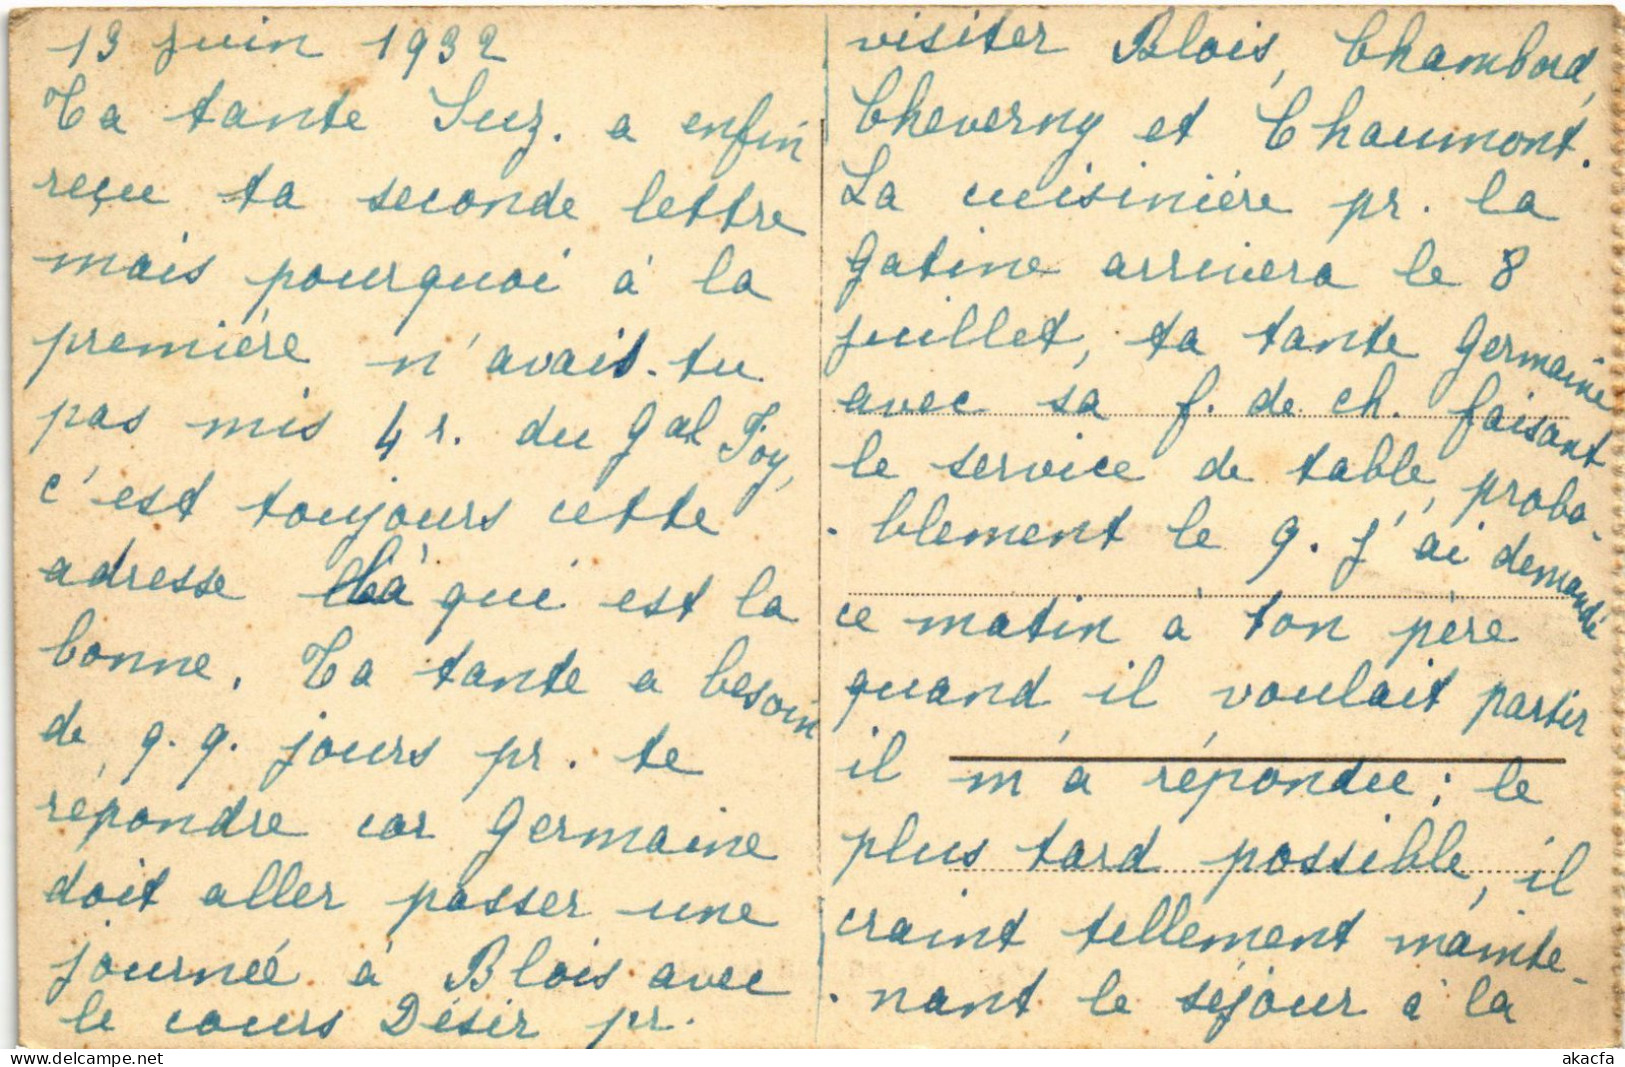 13 juin 1932
Ta tante Suz. a enfin
reçu ta seconde lettre
mais pourquoi à la
première n'avais-tu
pas mis 4 r. du Gal Foy,
c'est toujours cette
adresse là qui est la
bonne. Ta tante a besoin
de q.q. jours pr. te
répondre car Germaine
doit aller passer une
journée à Blois avec
le cours Désir pr.
visiter Blois, Chambord,
Cheverny et Chaumont.
La cuisinière pr. la
Gatine arrivera le 8
juillet, ta tante Germaine
avec sa f. de ch. faisant
le service de table, proba-
blement le 9. J'ai demandé
ce matin à ton père
quand il voulait partir
il m'a répondu : le
plus tard possible, il
craint tellement mainte-
nant le séjour à la
akacfa